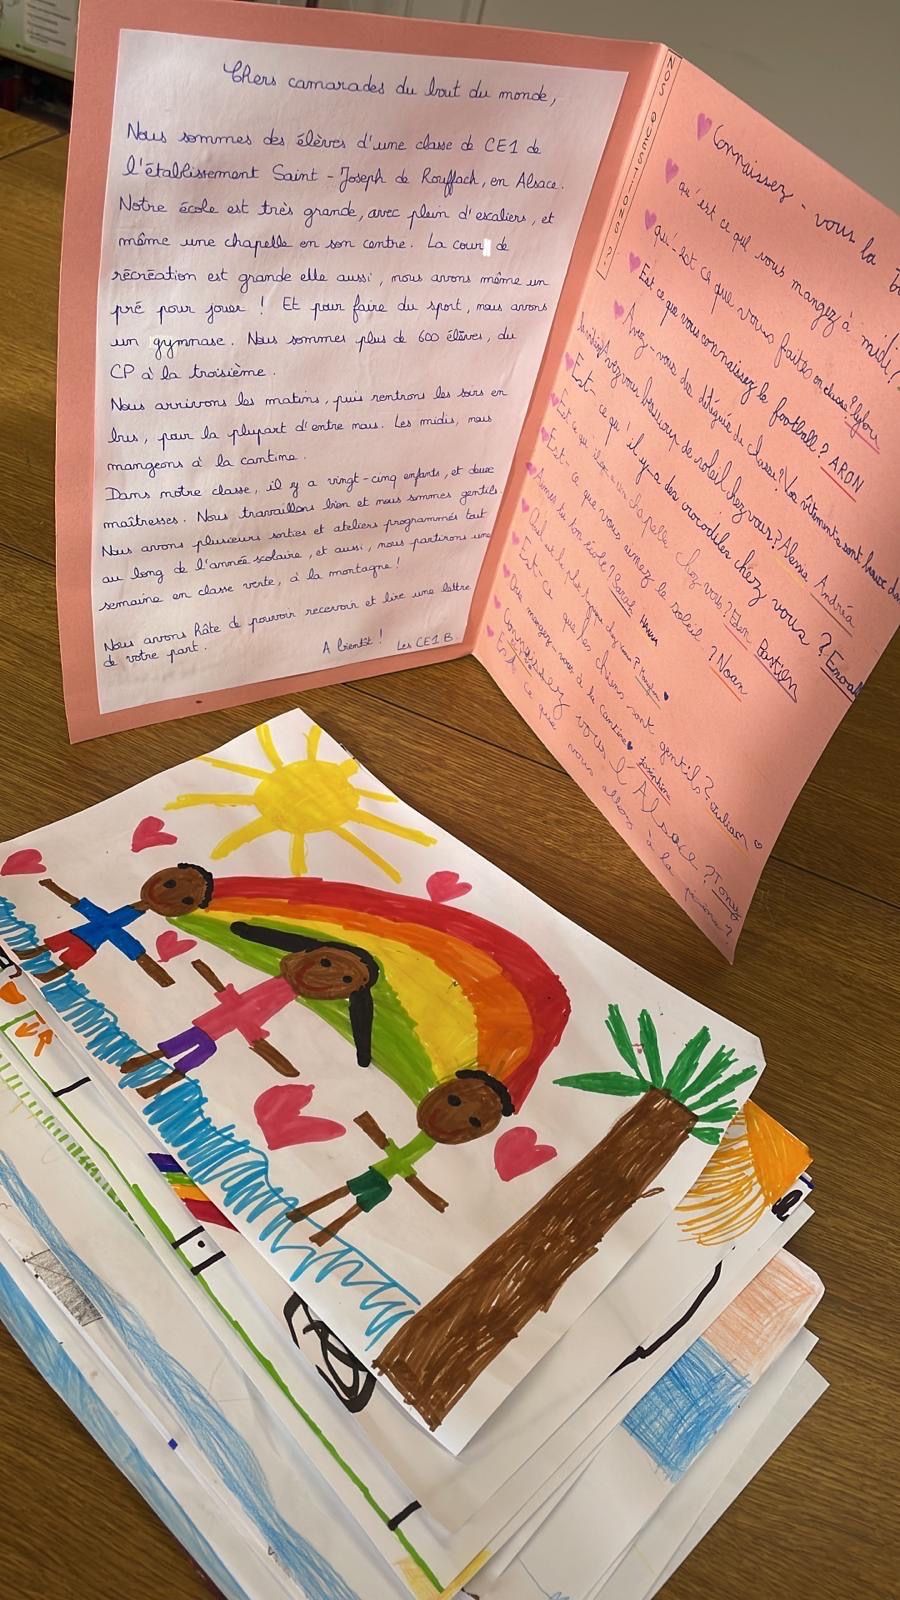 Chers camarades du bout du monde,
Nous sommes des élèves d'une classe de CE1 de
l'établissement Saint-Joseph de Rouffach, en Alsace.
Notre école est très grande, avec plein d'escaliers, et
même une chapelle en son centre. La cour de
récréation est grande elle aussi, nous avons même un
pré pour jouer ! Et pour faire du sport, nous avons
un gymnase. Nous sommes plus de 600 élèves, du
CP à la troisième.
Nous arrivons les matins, puis rentrons les soirs en
bus, pour la plupart d'entre nous. Les midis, nous
mangeons à la cantine.
Dans notre classe, il y a vingt-cinq enfants, et deux
maîtresses. Nous travaillons bien et nous sommes gentils.
Nous avons plusieurs sorties et ateliers programmés tout
au long de l'année scolaire, et aussi, nous partirons une
semaine en classe verte, à la montagne !
Nous avons hâte de pouvoir recevoir et lire une lettre
de votre part.
A bientôt ! Les CE1 B.
NOS QUESTIONS ??
Connaissez-vous la
qu'est ce que vous mangez à midi?
qu'est ce que vous faites en classe?
Est ce que vous connaissez le football ? ARON
Avez-vous des délégués de classe?
Avez vous beaucoup de soleil chez vous? Alessia Andréa
Est-ce qu'il y-a des crocodiles chez vous ?
Est ce qu'il chapelle chez-vous? Eden Bastien
Est-ce que vous aimez le soleil ? Noan
Aimez le ton école? Sarah
Quel est le plus chez vous?
Est-ce que les chiens sont gentils?
Que mangez-vous à la cantine Joséphine
Connaissez vous l'Alsace ? Tony
Est ce que vous allez à la piscine ?